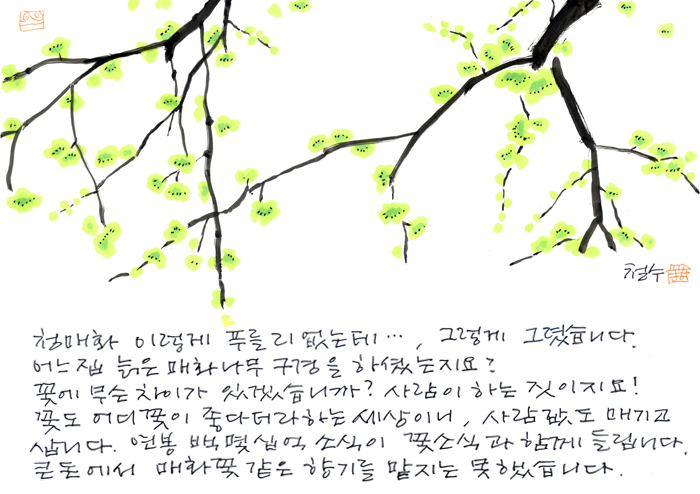 철수
청매화 이렇게 푸를리 없는데…, 그렇게 그렸습니다.
어느집 늙은 매화나무 구경을 하셨는지요?
꽃에 무슨 차이가 있겠습니까? 사람이 하는 짓이지요!
꽃도 어디꽃이 좋다더라하는 세상이니, 사람값도 매기고
삽니다. 연봉 백몇십억 소식이 꽃소식과 함께 들립니다.
큰돈에서 매화꽃같은 향기를 맡지는 못했습니다.